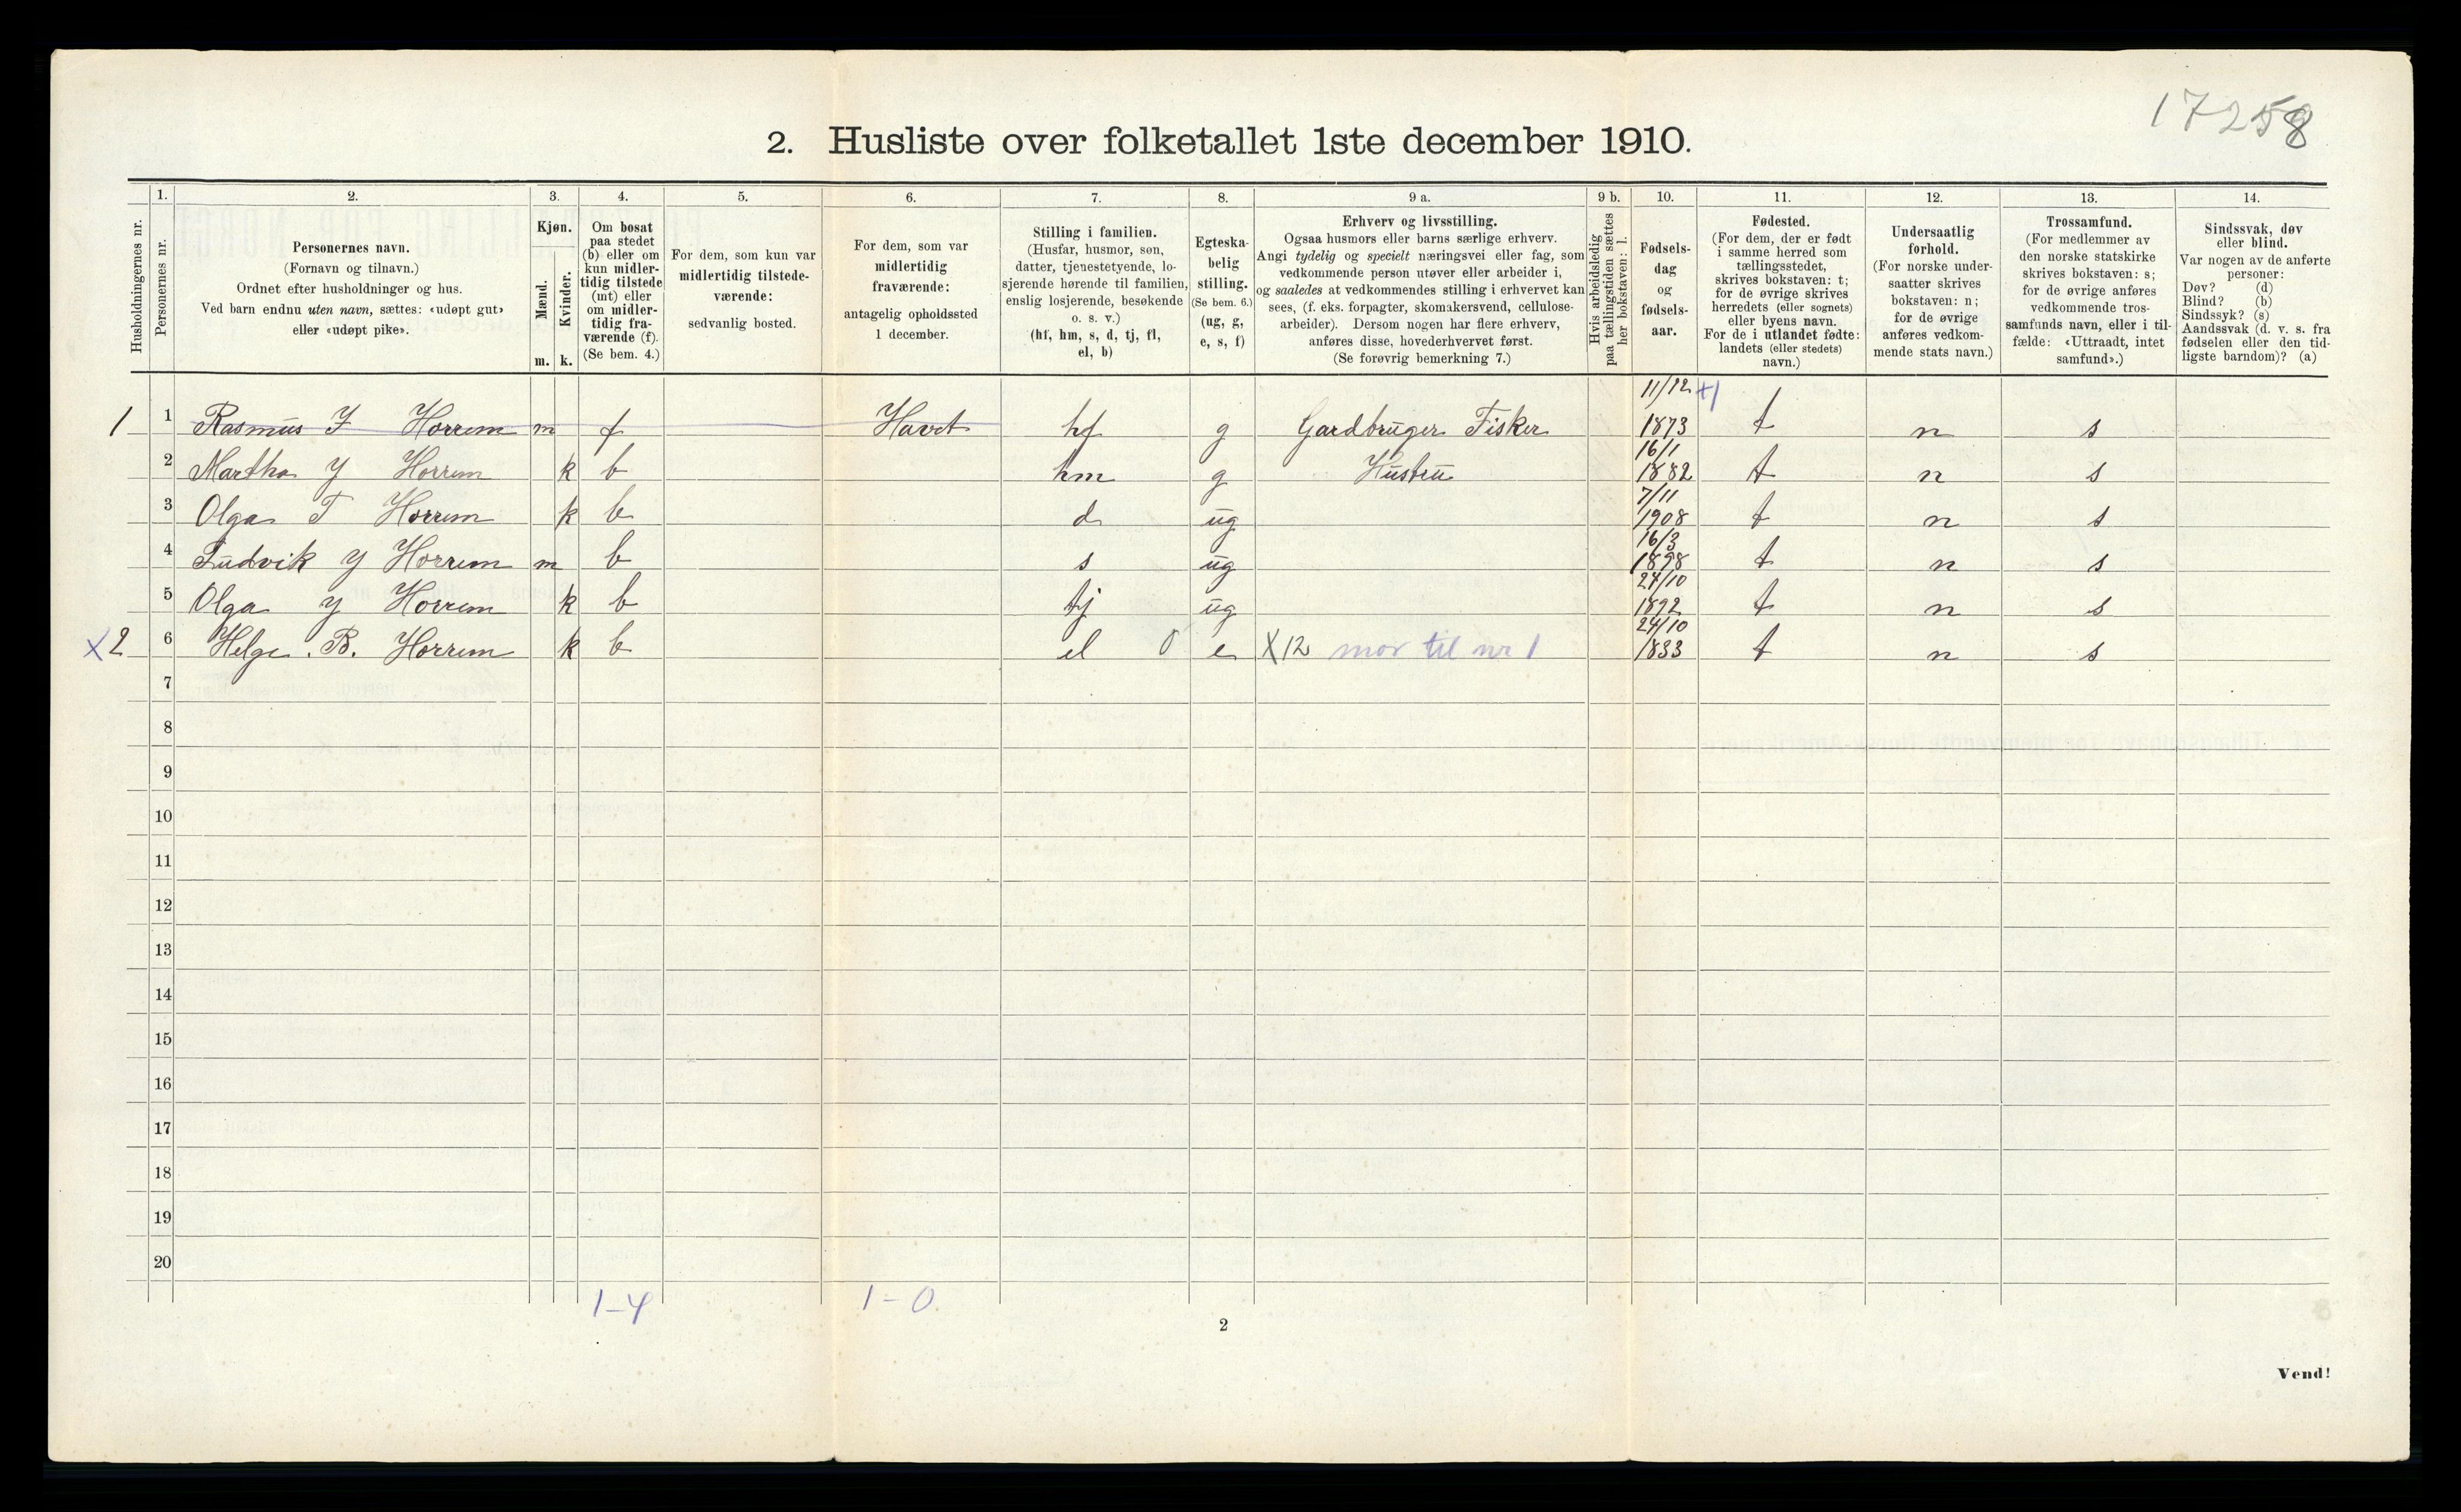 17258
2. Husliste over folketallet 1ste december 1910.
Husholdningernes nr.
1.
Personernes nr.
2.
Personernes navn.
(Fornavn og tilnavn.)
Ordnet efter husholdninger og hus.
Ved barn endnu uten navn, sættes: «udøpt gut»
eller «udøpt pike».
3.
Kjøn.
Mænd.
Kvinder.
m. k.
4.
Om bosat
paa stedet
(b) eller om
kun midler-
tidig tilstede
(mt) eller
om midler-
tidig fra-
værende (f).
(Se bem. 4.)
5.
For dem, som kun var
midlertidig tilstede-
værende:
sedvanlig bosted.
6.
For dem, som var
midlertidig
fraværende:
antagelig opholdssted
1 december.
7.
Stilling i familien.
(Husfar, husmor, søn,
datter, tjenestetyende, lo-
sjerende hørende til familien,
enslig losjerende, besøkende
o. s. v.)
(hf, hm, s, d, tj, fl,
el, b)
8.
Egteska-
belig
stilling.
(Se bem. 6.)
(ug, g,
e, s, f)
9 a.
Erhverv og livsstilling.
Ogsaa husmors eller barns særlige erhverv.
Angi tydelig og specielt næringsvei eller fag, som
vedkommende person utøver eller arbeider i,
og saaledes at vedkommendes stilling i erhvervet kan
sees, (f. eks. forpagter, skomakersvend, cellulose-
arbeider). Dersom nogen har flere erhverv,
anføres disse, hovederhvervet først.
(Se forøvrig bemerkning 7.)
9 b.
Hvis arbeidsledig
paa tællingstiden sættes
her bokstaven: l.
10.
Fødsels-
dag
og
fødsels-
aar.
11.
Fødested.
(For dem, der er født
i samme herred som
tællingsstedet,
skrives bokstaven: t;
for de øvrige skrives
herredets (eller sognets)
eller byens navn.
For de i utlandet fødte:
landets (eller stedets)
navn.)
12.
Undersaatlig
forhold.
(For norske under-
saatter skrives
bokstaven: n;
for de øvrige
anføres vedkom-
mende stats navn.)
13.
Trossamfund.
(For medlemmer av
den norske statskirke
skrives bokstaven: s;
for de øvrige anføres
vedkommende tros-
samfunds navn, eller i til-
fælde: «Uttraadt, intet
samfund».)
14.
Sindssvak, døv
eller blind.
Var nogen av de anførte
personer:
Døv? (d)
Blind? (b)
Sindssyk? (s)
Aandssvak (d. v. s. fra
fødselen eller den tid-
ligste barndom)? (a)
1 1 Rasmus I Horrem m f Havet hf g Gardbruger Fisker 11/12 1873 x1 t n s
2 Martha Y Horrem k b hm g Hustru 16/1 1882 t n s
3 Olga T Horrem k b d ug 7/11 1908 t n s
4 Ludvik Y Horrem m b s ug 16/3 1898 t n s
5 Olga Y Horrem k b tj ug 27/10 1892 t n s
X2 6 Helge. B. Horrem k b el 0 e X12 mor til nr 1 24/10 1833 t n s
7
8
9
10
11
12
13
14
15
16
17
18
19
20
1-4 1-0
2
Vend!